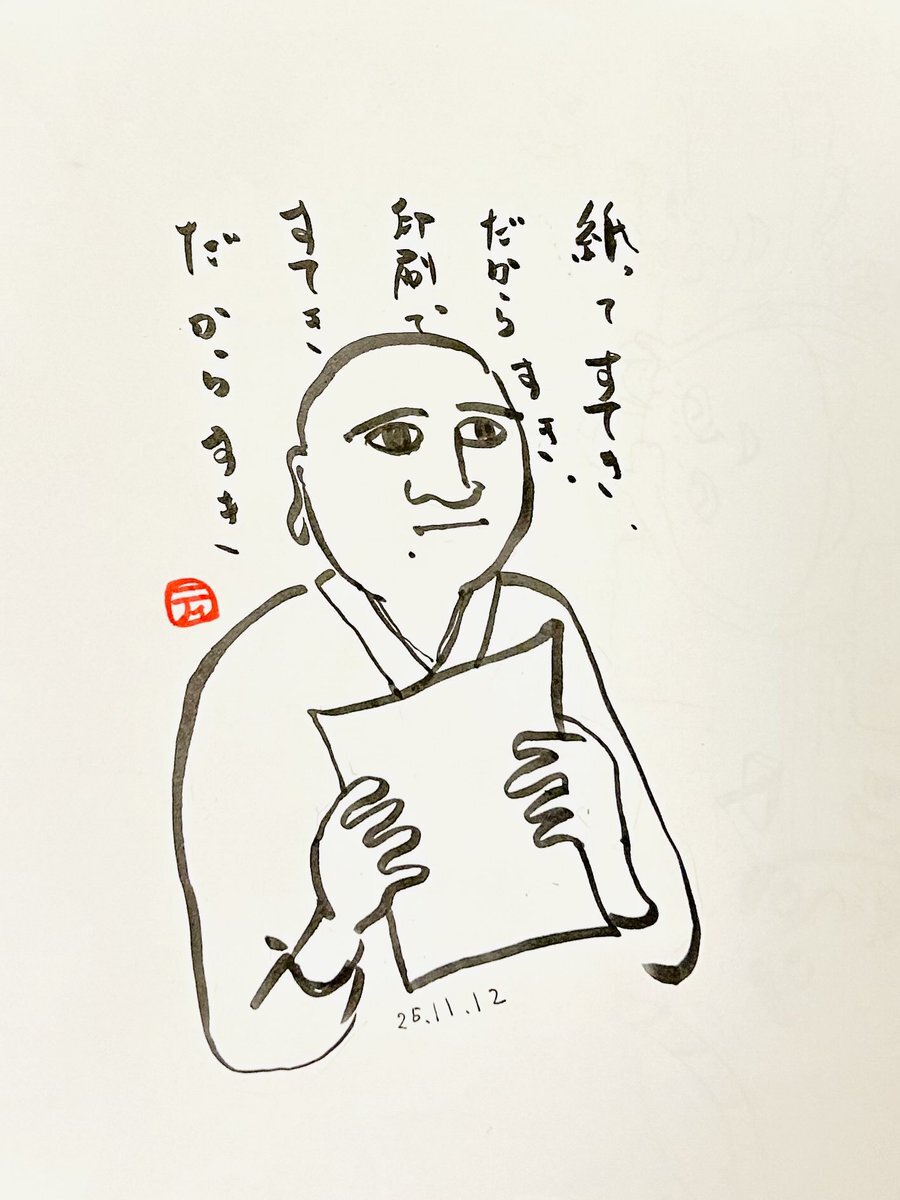 紙ってすてき、
だからすき.
印刷で
すてき、
だからすき、
25.11.12